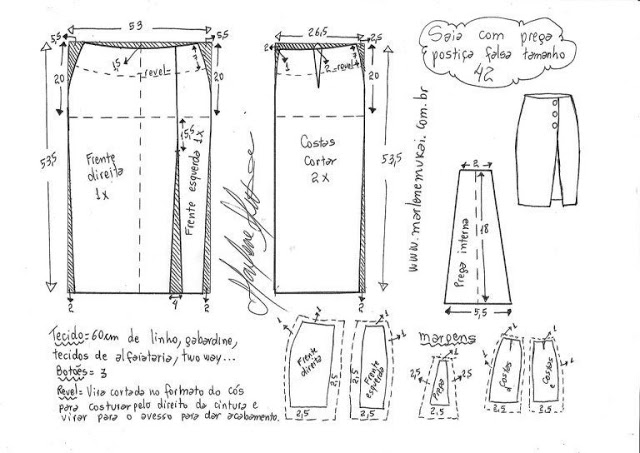 Saia com prega
postiça falsa tamanho
42
53
5,5
5,5
1,5
3
revel
20
20
53,5
5,5
Frente
direita
1x
Frente esquerda 1x
2
4
2
26,5
2,5
2
1
2
3
revel
20
53,5
Costas
Cortar
2x
2
www.marlenemukai.com.br
2
18
Prega interna
5,5
Tecido= 60cm de linho, gabardine,
tecidos de alfaiataria, two way...
Botões= 3
Revel= Vira cortada no formato do cós
para costurar pelo direito da cintura e
virar para o avesso para dar acabamento.
margens
1
1
Frente
direita
2,5
2,5
1
1
Frente
esquerda
2,5
2,5
1
2,5
Prega
2,5
2,5
1
1
Costas
D
2,5
1
1
Costas
E
2,5